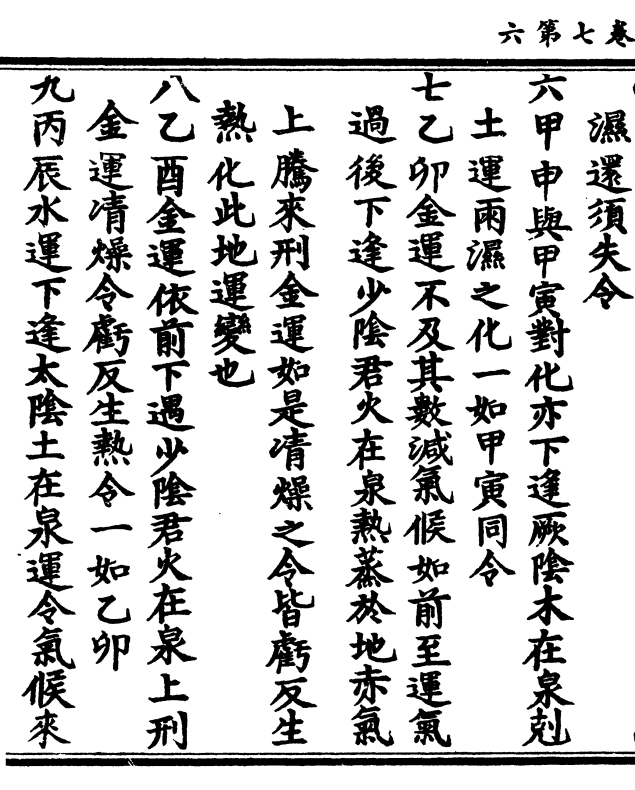 卷七第六
濕還須失令
六甲申與甲寅對化亦下逢厥陰木在泉剋
土運雨濕之化一如甲寅同令
七乙卯金運不及其數減氣候如前至運氣
過後下逢少陰君火在泉熱蒸於地赤氣
上騰來刑金運如是凊燥之令皆虧反生
熱化此地運變也
八乙酉金運依前下遇少陰君火在泉上刑
金運凊燥令虧反生熱令一如乙卯
九丙辰水運下逢太陰土在泉運令氣候來